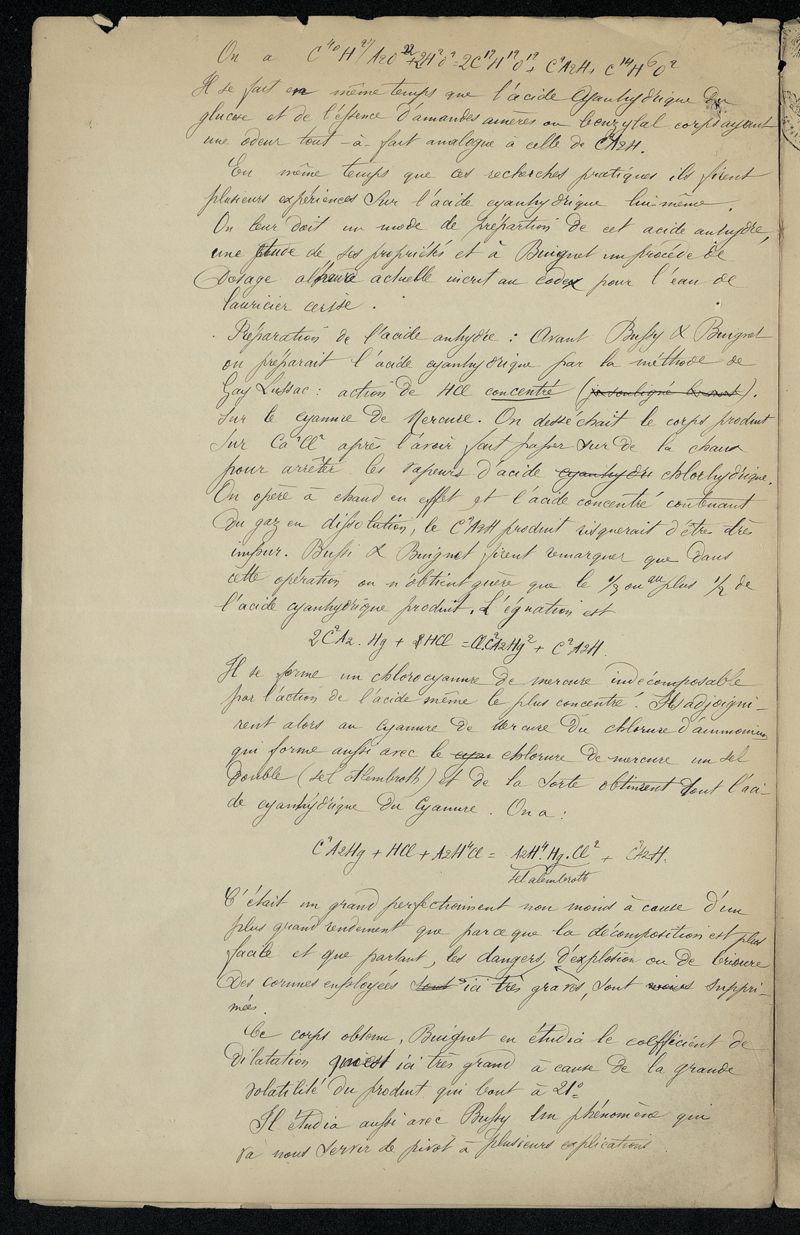 On a C⁴⁰H²⁷AzO²² + 2H²O² = 2C¹²H¹²O¹² + C²AzH + C¹⁴H⁶O²
Il se fait en même temps que l'acide Cyanhydrique du
glucose et de l'essence d'amandes amères ou benzylal corps ayant
une odeur tout-à-fait analogue à celle de C²AzH.
En même temps que ces recherches pratiques ils firent
plusieurs expériences sur l'acide cyanhydrique lui-même.
On leur doit un mode de prépartion de cet acide anhydre,
une étude de ses propriétés et à Buignet un procédé de
Dosage actuelle inscrit au codex pour l'eau de
lauricier cerise.
Préparation de l'acide anhydre : Avant Bussy & Buignet
on préparait l'acide cyanhydrique par la méthode de
Gay Lussac : action de HCl concentré ().
sur le cyanure de Mercure. On desséchait le corps produit
sur Ca²Cl² après l'avoir fait passer sur de la chaux
pour arrêter les vapeurs d'acide cyanhydri chlorhydrique.
On opère à chaud en effet et l'acide concentré contenant
du gaz en dissolution, le C²AzH produit risquerait d'être très
impur. Bussi & Buignet firent remarquer que dans
cette opération on n'obtient guère que le 1/3 ou au plus 1/2 de
l'acide cyanhydrique produit. L'équation est
2C²Az.Hg + HCl = Cl.C²AzHg² + C²AzH.
Il se forme un chlorocyanure de mercure indécomposable
par l'action de l'acide même le plus concentré. Ils adjoigni-
rent alors au Cyanure de Mercure du chlorure d'ammonium
qui forme aussi avec le cyan chlorure de mercure un sel
double (sel Alembroth) et de la sorte obtinrent tout l'aci-
de cyanhydrique du Cyanure. On a :
C²AzHg + HCl + AzH⁴Cl = AzH⁴.Hg.Cl² + C²AzH.
sel alembroth
C'était un grand perfectionnent non moins à cause d'un
plus grand rendement que parce que la décomposition est plus
facile et que partant, les dangers, d'explosion ou de brisure
des cornues employées sont ici très graves, sont suppri-
més.
Ce corps obtenu, Buignet en étudia le coefficient de
dilatation qui est ici très grand à cause de la grande
volatilité du produit qui bout à 21°
Il étudia aussi avec Bussy un phénomène qui
va nous servir de pivot à plusieurs explications